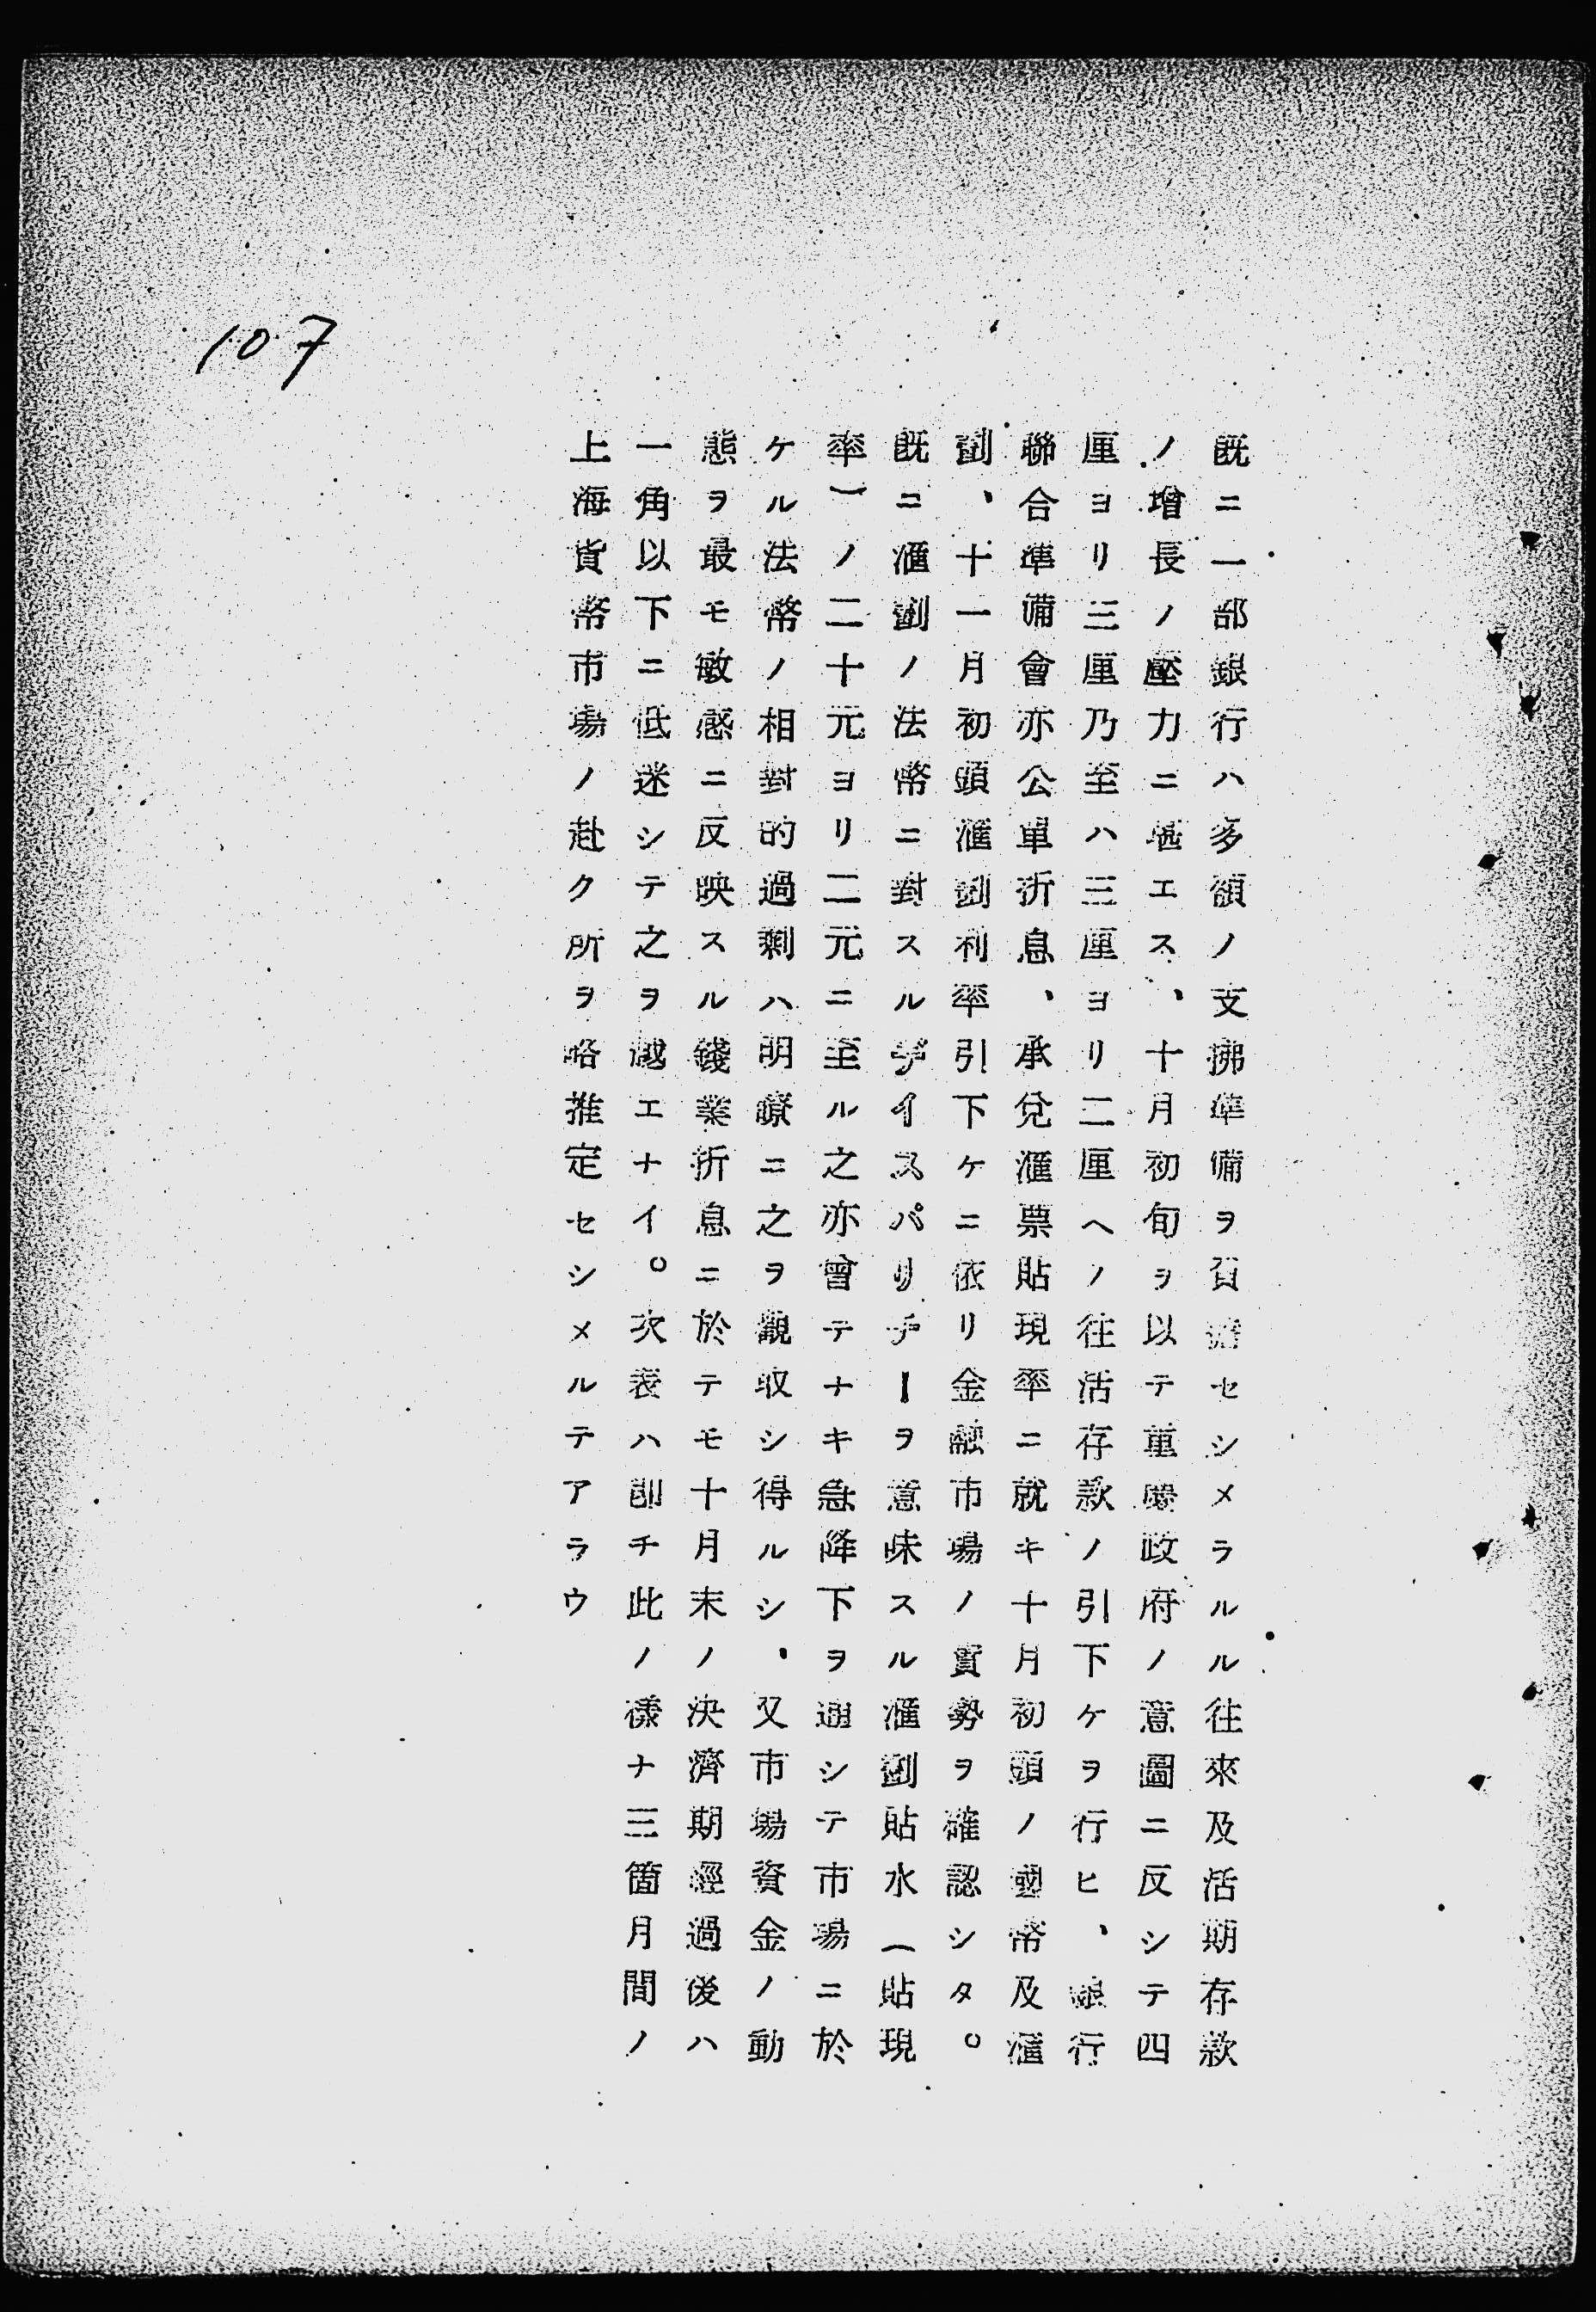 107
既ニ一部銀行ハ多額ノ支拂準備ヲ負擔セシメラルル往來及活期存款
ノ増長ノ壓力ニ堪エス、十月初旬ヲ以テ重慶政府ノ意圖ニ反シテ四
厘ヨリ三厘乃至ハ三厘ヨリ二厘ヘノ往活存款ノ引下ケヲ行ヒ、銀行
聯合準備會亦公單折息、承兌滙票貼現率ニ就キ十月初頭ノ國幣及滙
劃、十一月初頭滙劃利率引下ケニ依リ金融市場ノ實勢ヲ確認シタ。
既ニ滙劃ノ法幣ニ對スルデイスパリチーヲ意味スル滙劃貼水(貼現
率)ノ二十元ヨリ二元ニ至ル之亦曾テナキ急降下ヲ通シテ市場ニ於
ケル法幣ノ相對的過剩ハ明瞭ニ之ヲ觀取シ得ルシ、又市場資金ノ動
態ヲ最モ敏感ニ反映スル錢業折息ニ於テモ十月末ノ決濟期經過後ハ
一角以下ニ低迷シテ之ヲ越エナイ。次表ハ卽チ此ノ樣ナ三箇月間ノ
上海貨幣市場ノ赴ク所ヲ略推定セシメルテアラウ